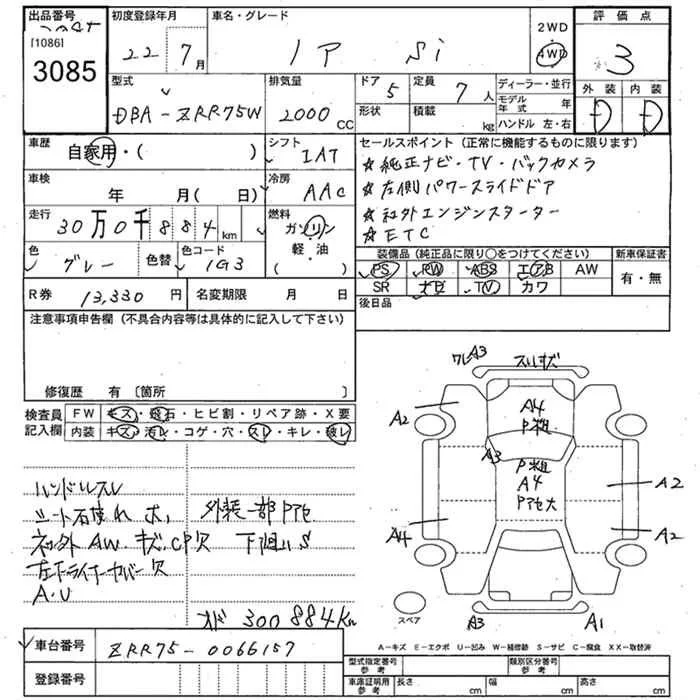 出品番号
[1086]
3085
初度登録年月
22年 7月
車名・グレード
ノア Si
2WD
4WD
評価点
3
外装 内装
D D
型式
DBA-ZRR75W
排気量
2000 CC
ドア
5
形状
定員
7人
積載
kg
ディーラー・並行
モデル年式 年
ハンドル 左・右
車歴
自家用・( )
シフト
IAT
車検
年 月( 日)
冷房
AAC
走行
30万0千884km
燃料
ガソリン
軽・油
( )
色
グレー
色替
色コード
1G3
R券
13,330 円
名変期限 月 日
セールスポイント(正常に機能するものに限ります)
★純正ナビ・TV・バックカメラ
★左側パワースライドドア
★社外エンジンスターター
★ETC
装備品(純正品に限り○をつけてください)
新車保証書
PS PW ABS エアB AW
SR ナビ TV カワ
有・無
後日品
注意事項申告欄(不具合内容等は具体的に記入して下さい)
修復歴 有〔箇所 〕
検査員記入欄
FW キズ・飛石・ヒビ割・リペア跡・X要
内装 キズ・汚レ・コゲ・穴・スレ・キレ・破レ
ハンドルスレ
シート
外装一部Pアセ
AW・キズ・CP欠
下廻りS
左下ライナーカバー欠
A.U
300884Km
ワレA3
スリキズ
A4
P粗
A2
A3
P粗
A4
Pアセ大
A2
A4
A2
スペア
A3
A1
A-キズ E-エクボ U-凹み W-補修跡 S-サビ C-腐食 XX-取替済
車台番号
ZRR75-0066157
登録番号
型式指定番号 参考
類別区分番号 参考
車庫証明用 参考
長さ cm
幅 cm
高さ cm